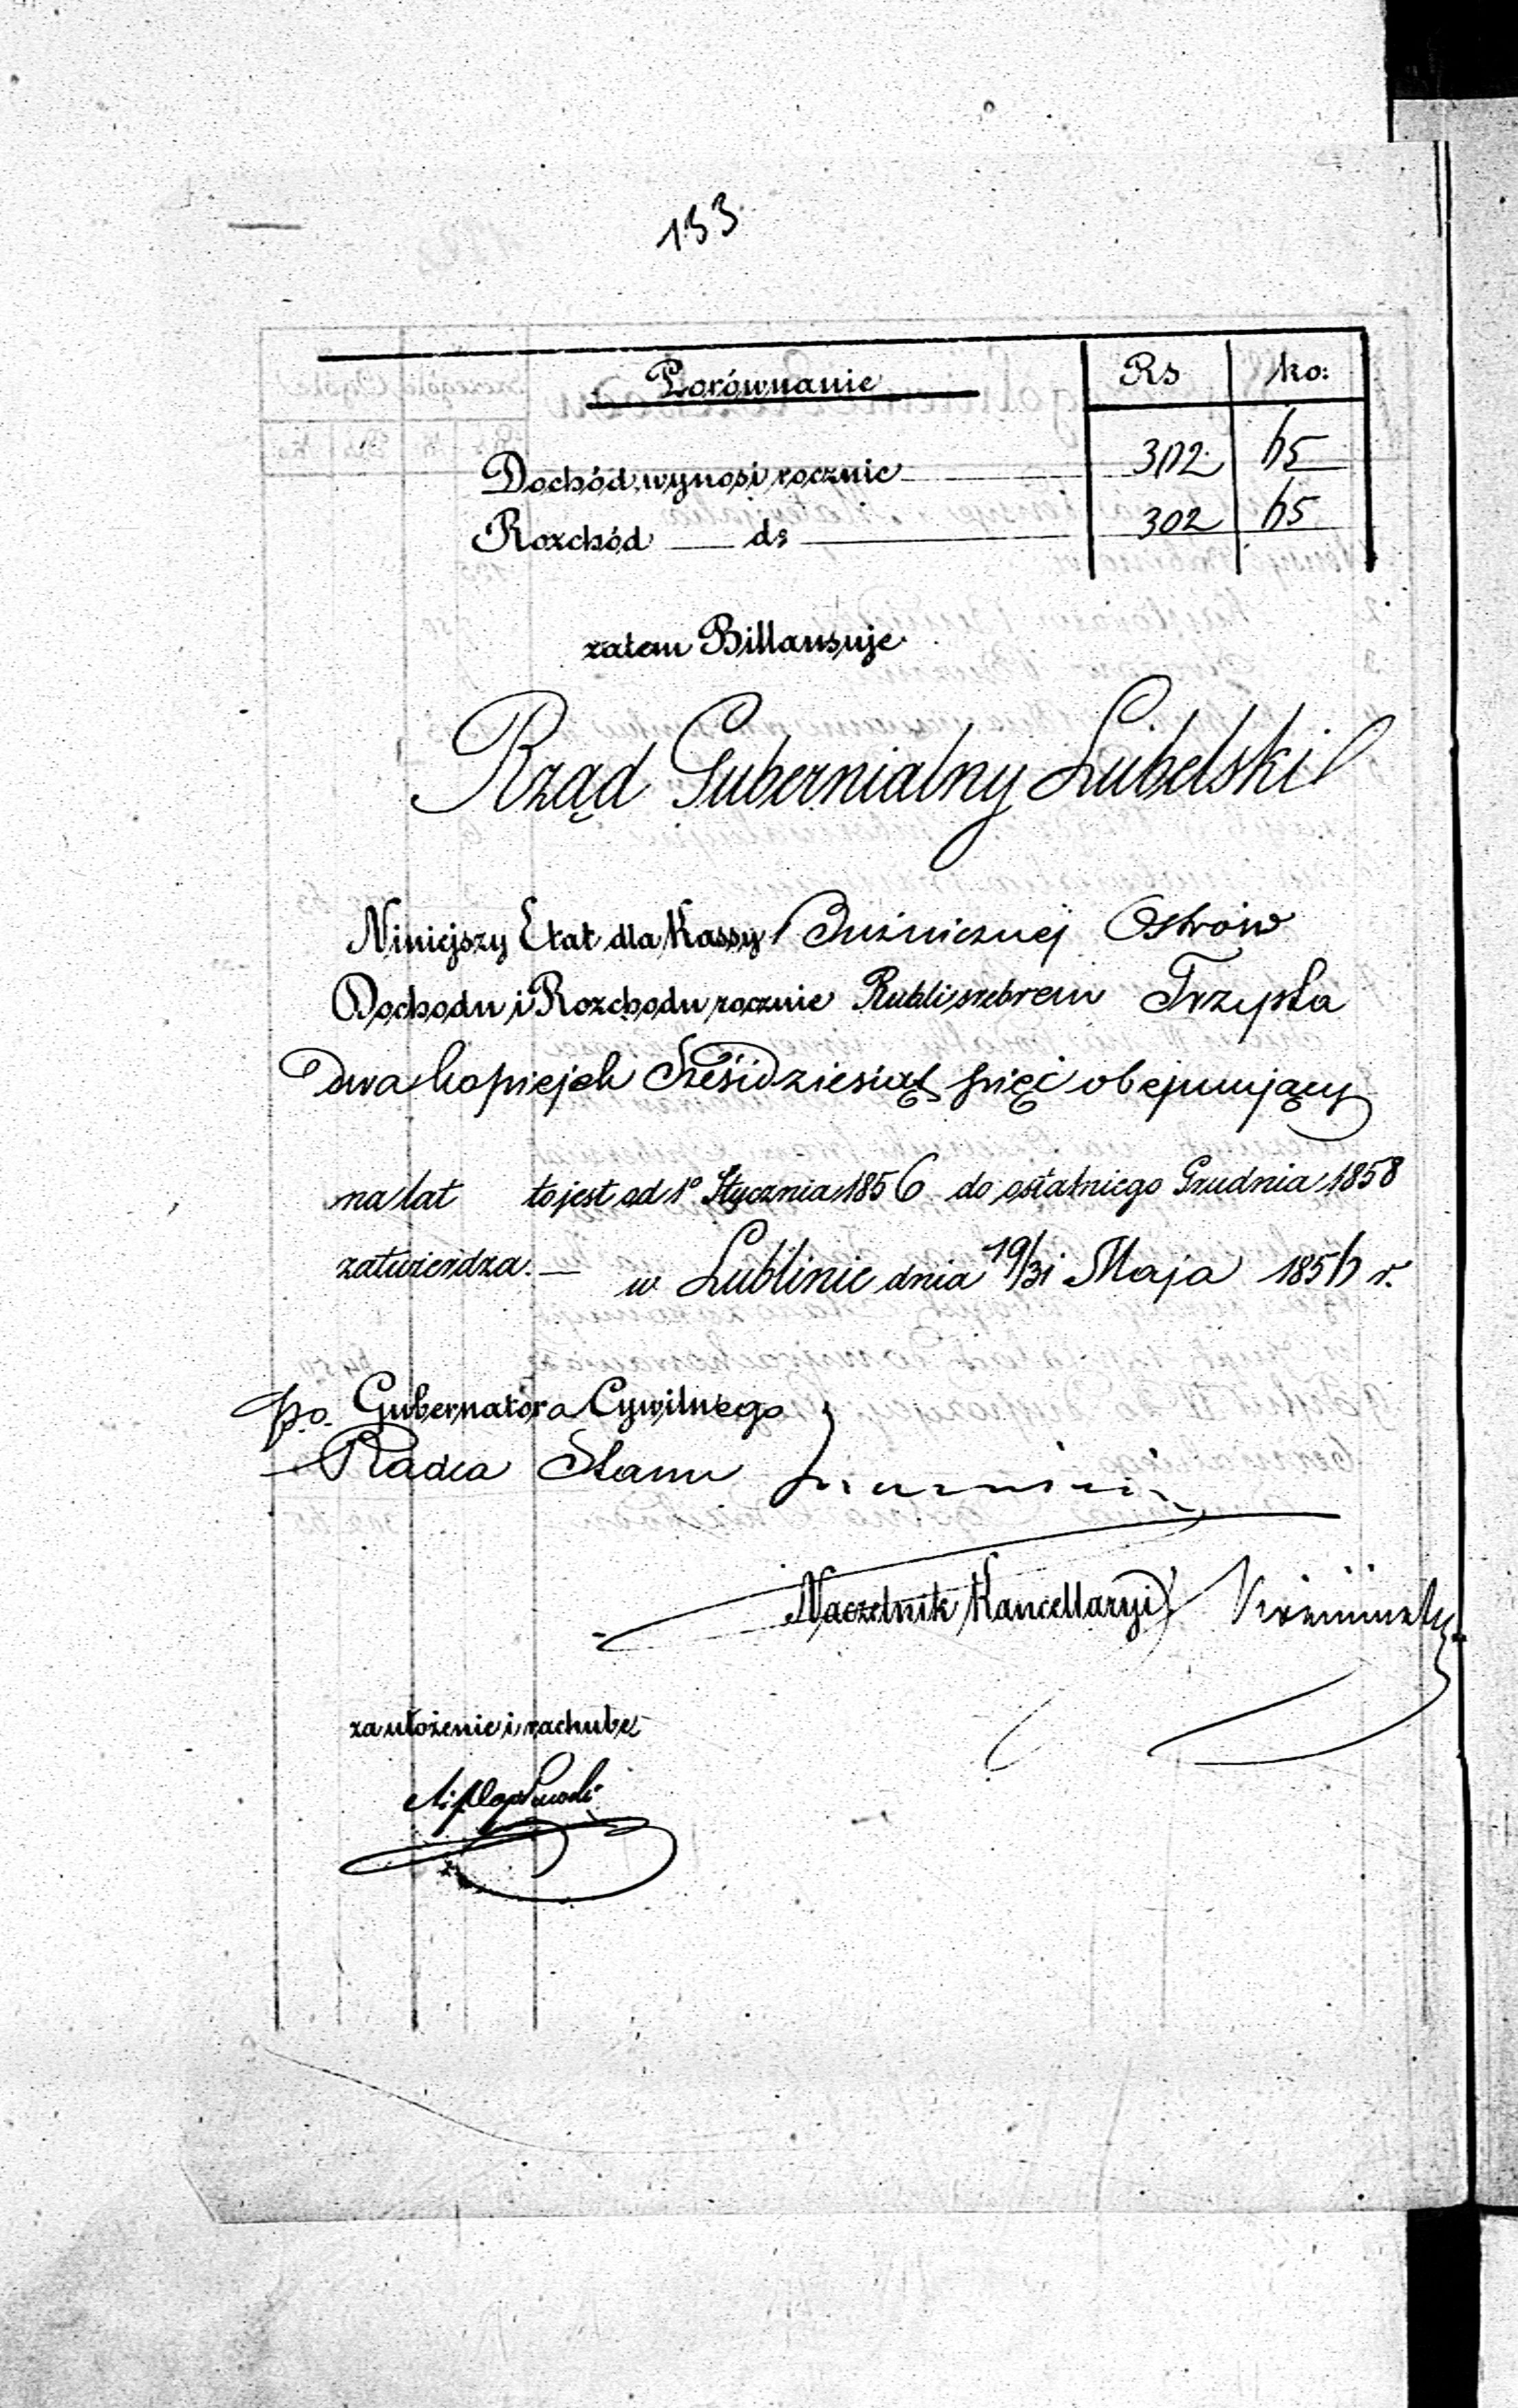 133
Porównanie Rs ko:
Dochód wynosi rocznie 302 65
Rozchód ds 302 65
zatem Billansuje
Rząd Gubernialny Lubelski
Niniejszy Etat dla Kassy Bużnicznej Ostrów
Dochodu i Rozchodu rocznie Rubli srebrem Trzysta
dwa kopiejek Sześćdziesiąt pięć obejmujący
na lat to jest od 1° Stycznia 1856 do ostatniego Grudnia 1858
zatwierdza. — w Lublinie dnia 19/31 Maja 1856 r.
po. Gubernatora Cywilnego
Radca Stanu
Naczelnik Kancellaryi
za ułożenie i rachubę